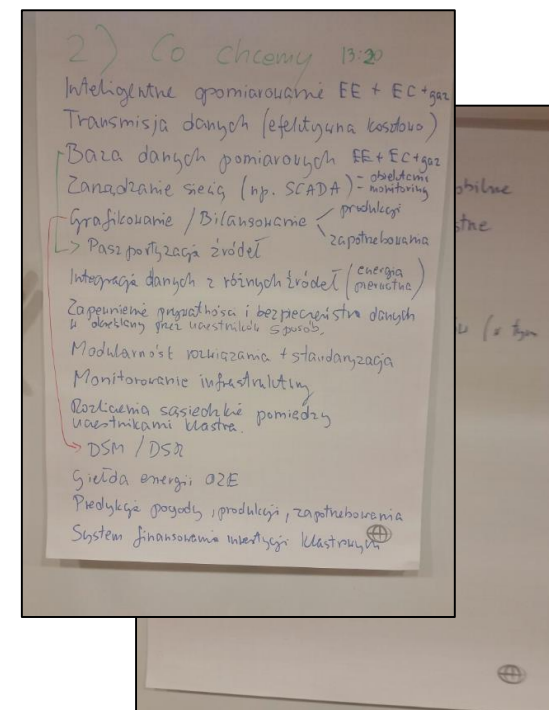 2) Co chcemy 13:20
Inteligentne opomiarowanie EE + EC + gaz
Transmisja danych (efektywna kosztowo)
Baza danych pomiarowych EE + EC + gaz
Zarządzanie siecią (np. SCADA) - obiektami
- monitoring
Grafikowanie / Bilansowanie produkcji
zapotrzebowania
Paszportyzacja źródeł
Integracja danych z różnych źródeł (energia
pierwotna)
Zapewnienie prywatności i bezpieczeństwa danych
w określony przez uczestników sposób.
Modularność rozwiązania + standaryzacja
Monitorowanie infrastruktury
Rozliczenia sąsiedzkie pomiędzy
uczestnikami klastra.
DSM / DSR
Giełda energii OZE
Predykcja pogody, produkcji, zapotrzebowania
System finansowania inwestycji klastrowych